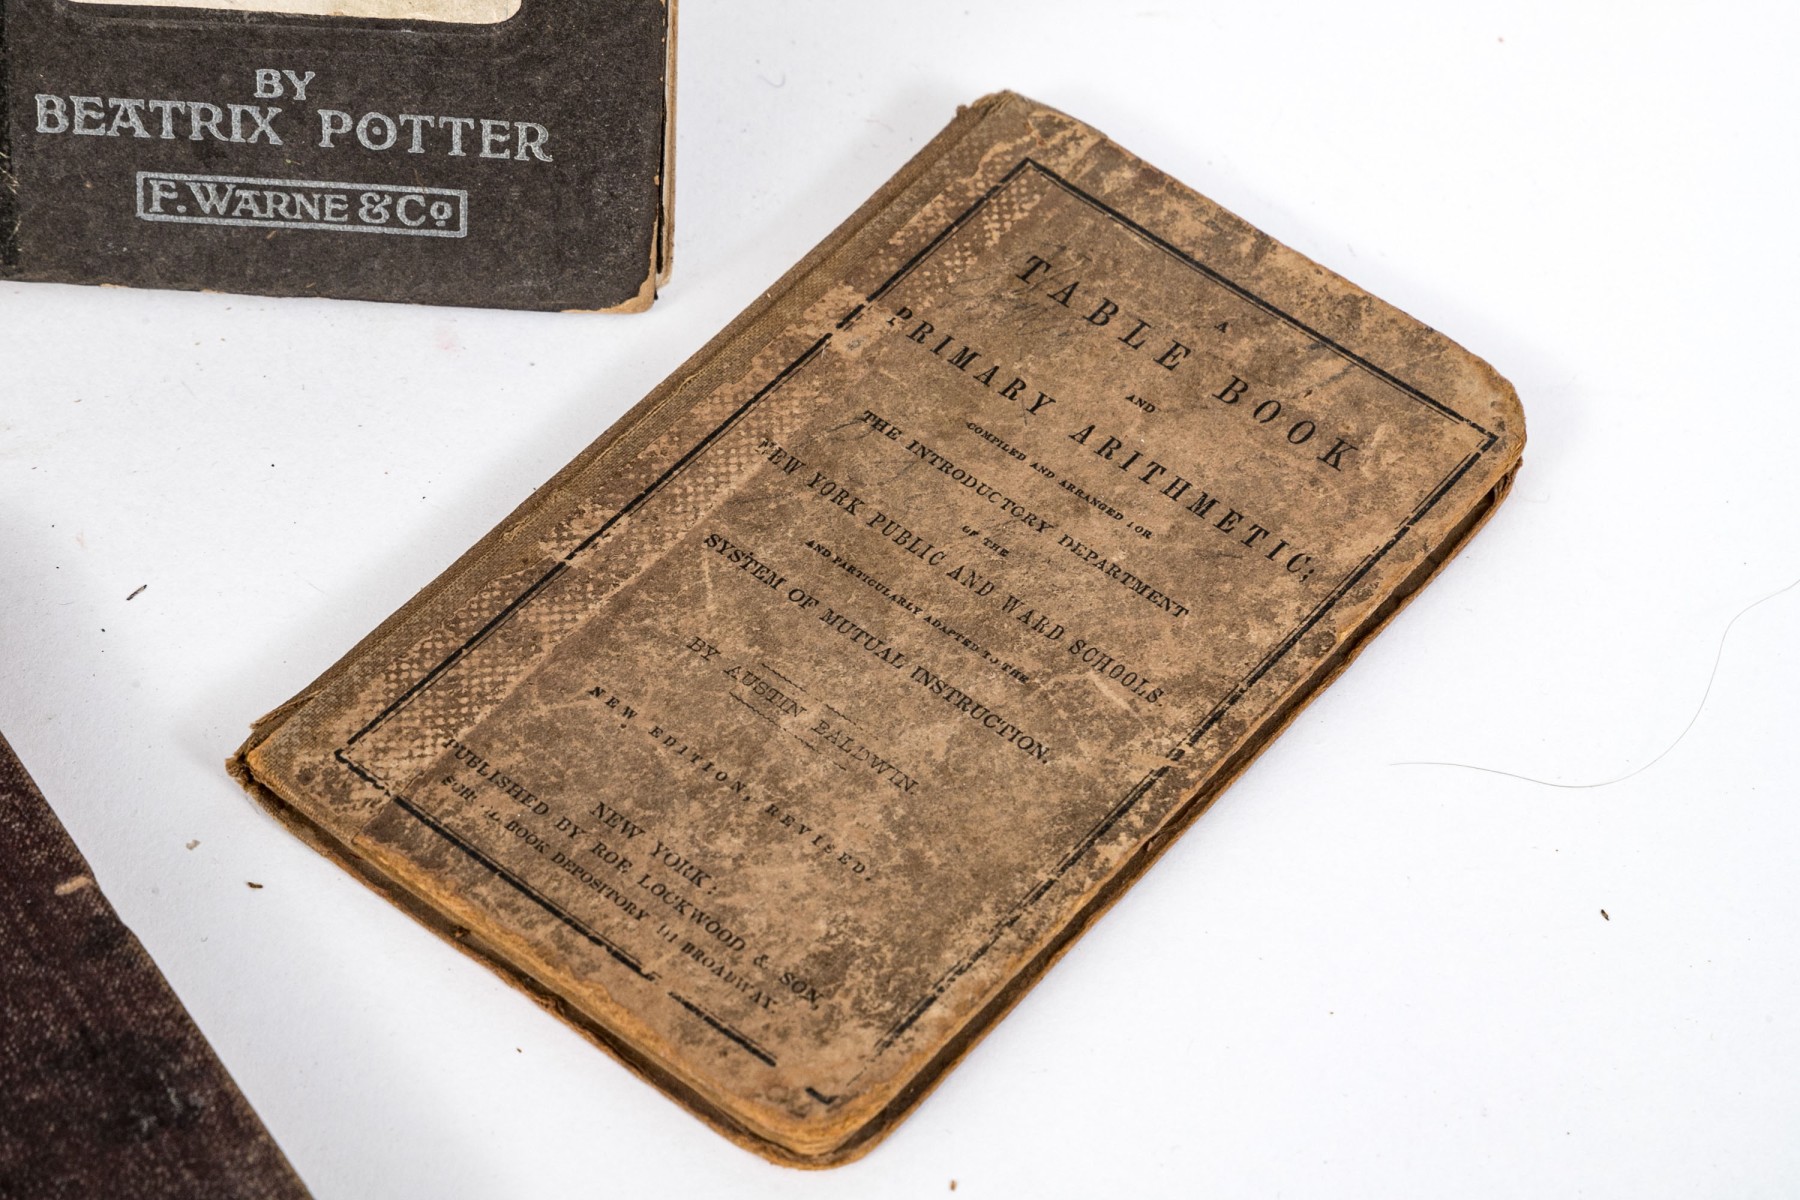 BY
BEATRIX POTTER
F. WARNE & Co.
A
TABLE BOOK
AND
PRIMARY ARITHMETIC;
COMPILED AND ARRANGED FOR
THE INTRODUCTORY DEPARTMENT
OF THE
NEW YORK PUBLIC AND WARD SCHOOLS.
AND PARTICULARLY ADAPTED TO THE
SYSTEM OF MUTUAL INSTRUCTION.
BY AUSTIN BALDWIN.
NEW EDITION, REVISED.
NEW YORK:
PUBLISHED BY ROE LOCKWOOD & SON,
BOOK DEPOSITORY BROADWAY.